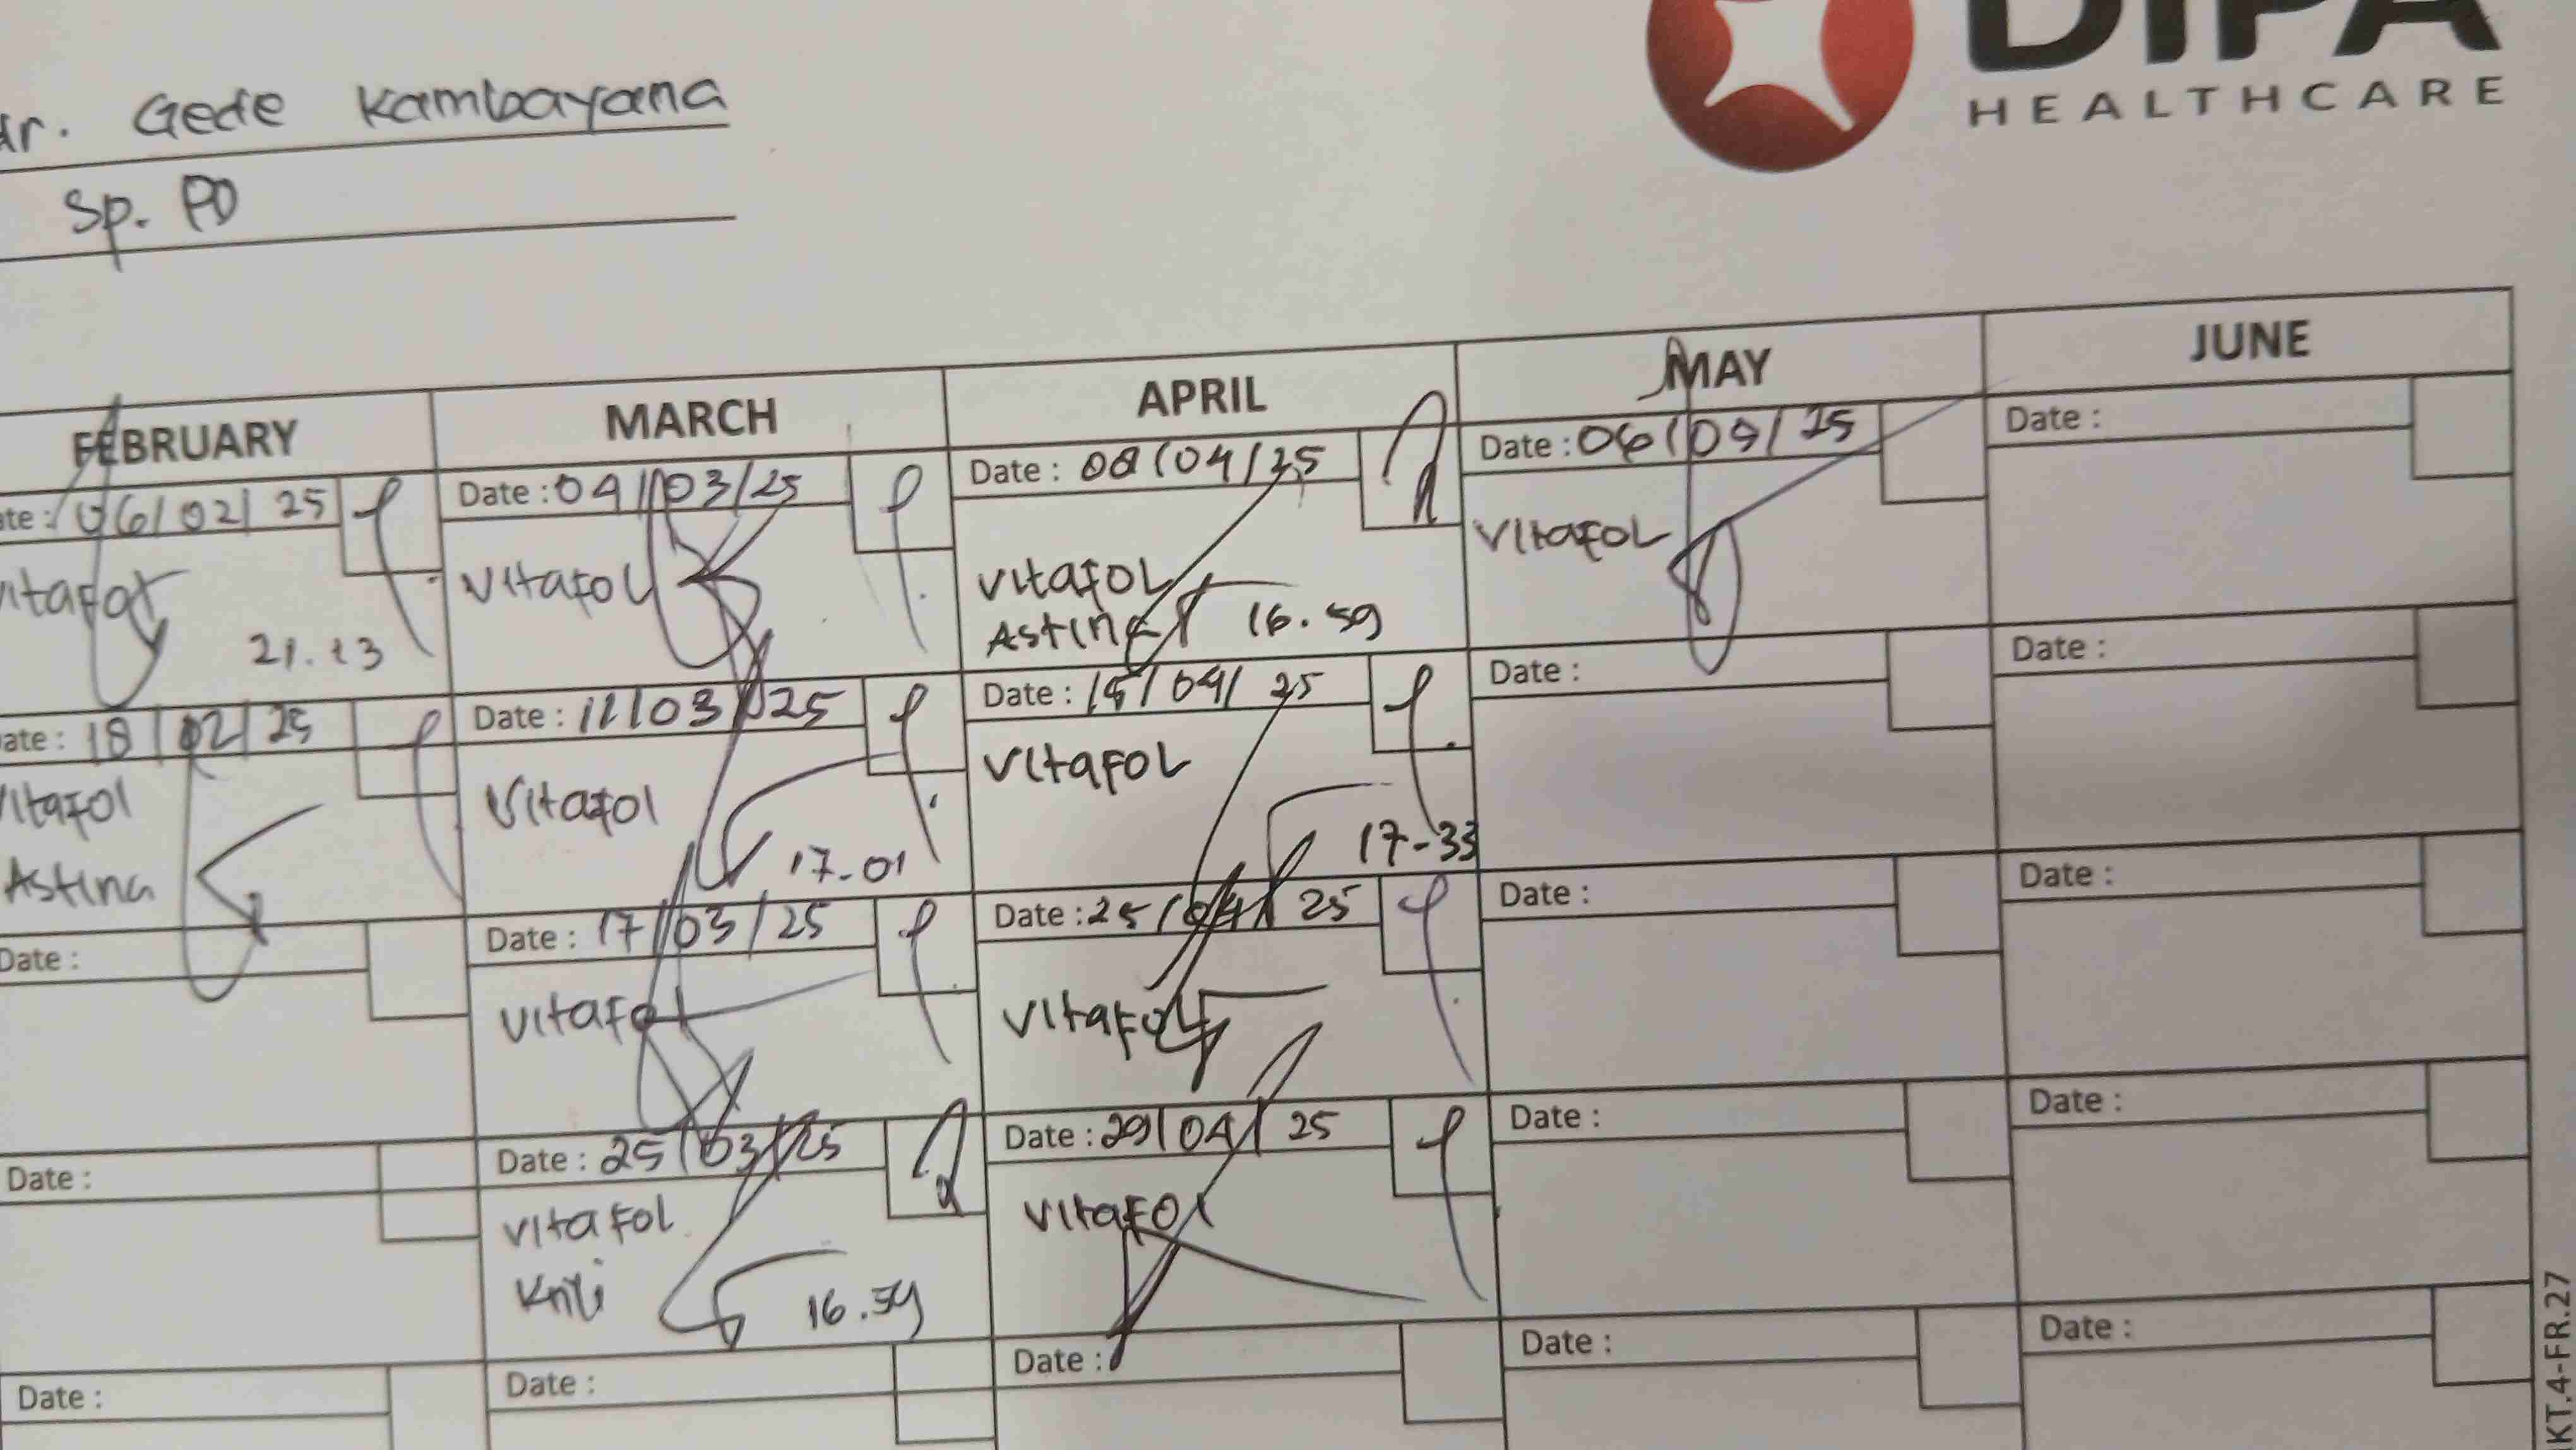 DIPA
HEALTHCARE
dr. Gede Kambayana
Sp. PD
FEBRUARY
MARCH
APRIL
MAY
JUNE
ate: 06/02/25
Date: 04/03/25
Date: 08/04/25
Date: 06/05/25
Date:
Vitafol
21.13
Vitafol
Vitafol
Astina
16.59
Vitafol
ate: 18/02/25
Date: 11/03/25
Date: 15/04/25
Date:
Date:
Vitafol
Astina
Vitafol
17-01
Vitafol
17-33
Date:
Date: 17/03/25
Date: 25/04/25
Date:
Date:
Vitafol
Vitafol
Date:
Date: 25/03/25
Date: 29/04/25
Date:
Date:
Vitafol
16.59
Vitafol
Date:
Date:
Date:
Date:
Date:
KT.4-FR.27